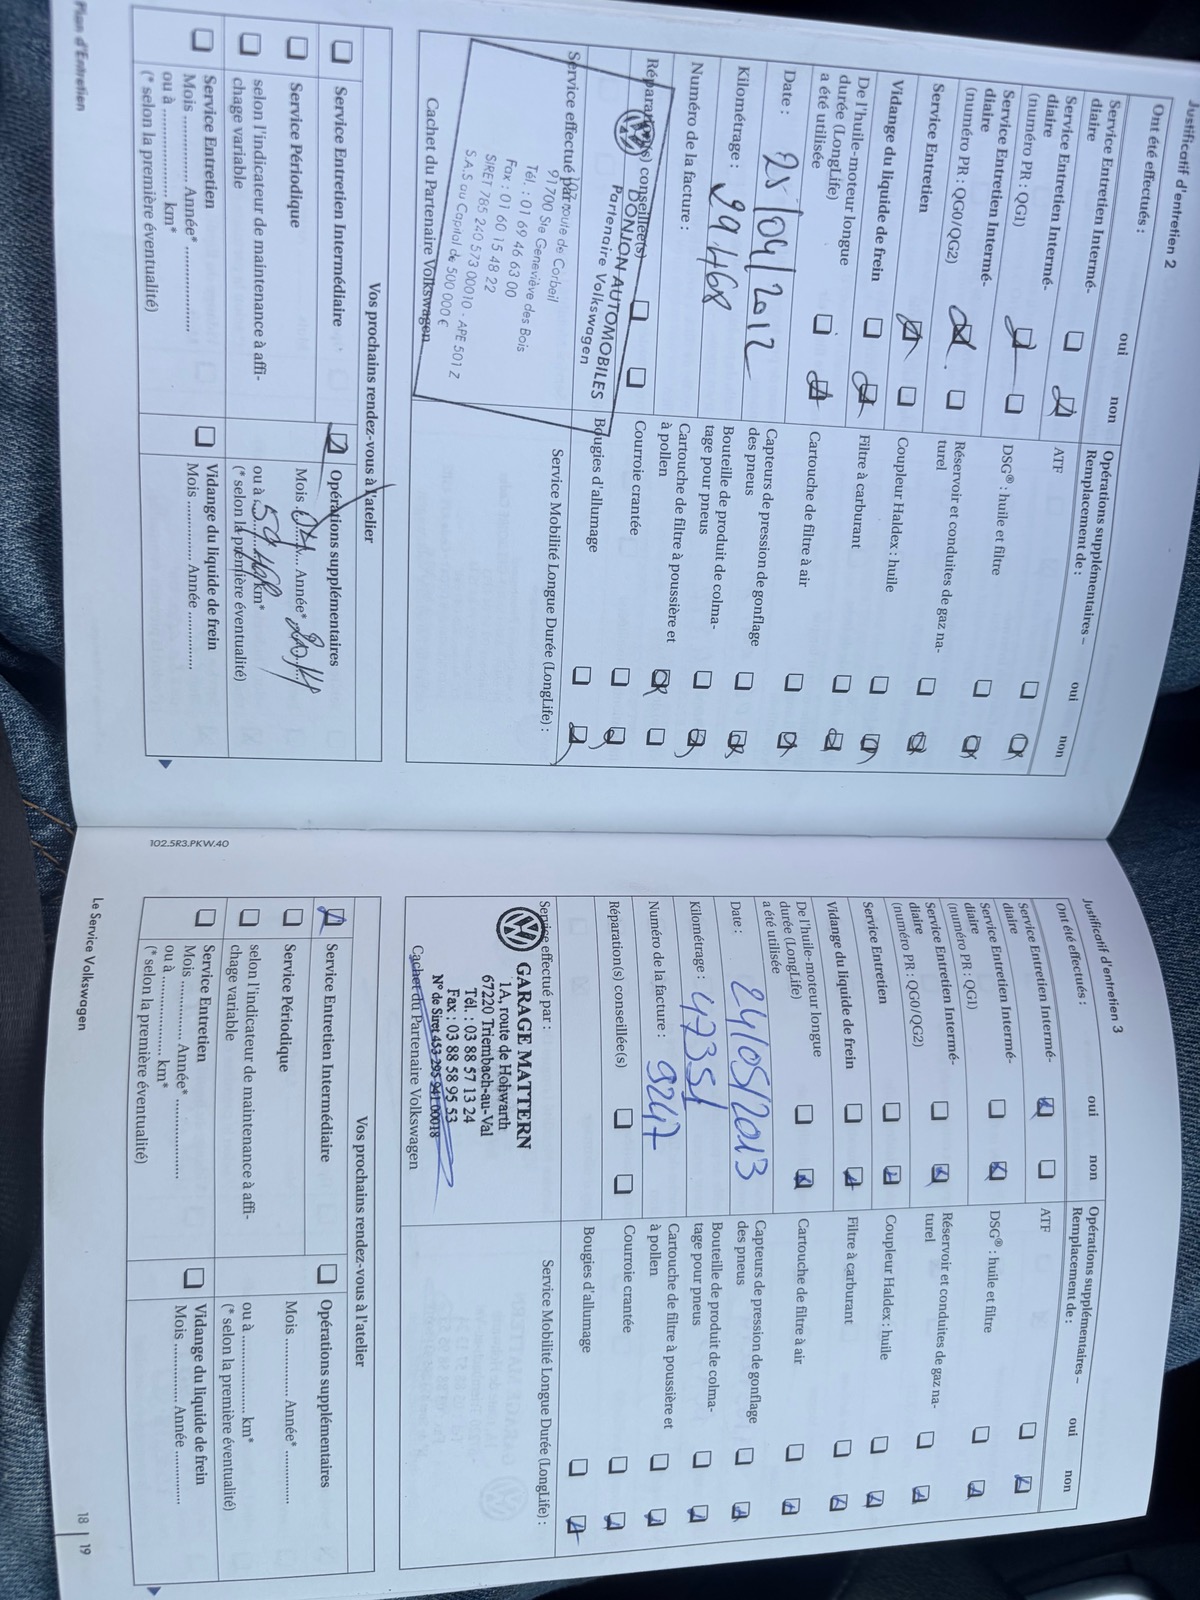 Justificatif d'entretien 2
Ont été effectués :
oui
non
Service Entretien Intermé-
diaire
Service Entretien Intermé-
diaire
(numéro PR : QG1)
Service Entretien Intermé-
diaire
(numéro PR : QG0/QG2)
Service Entretien
Vidange du liquide de frein
De l'huile-moteur longue
durée (LongLife)
a été utilisée
Date :
25/04/2012
Kilométrage :
29 468
Numéro de la facture :
Réparation(s) conseillée(s)
Service effectué par :
DONJON AUTOMOBILES
Partenaire Volkswagen
de Corbeil
91700 Ste Geneviève des Bois
Tél. : 01 69 46 63 00
Fax : 01 60 15 48 22
SIRET 785 240 573 00010 - APE 501 Z
S.A.S au Capital de 500 000 €
Cachet du Partenaire Volkswagen
Opérations supplémentaires –
Remplacement de :
oui
non
ATF
DSG® : huile et filtre
Réservoir et conduites de gaz na-
turel
Coupleur Haldex : huile
Filtre à carburant
Cartouche de filtre à air
Capteurs de pression de gonflage
des pneus
Bouteille de produit de colma-
tage pour pneus
Cartouche de filtre à poussière et
à pollen
Courroie crantée
Bougies d'allumage
Service Mobilité Longue Durée (LongLife) :
Vos prochains rendez-vous à l'atelier
Service Entretien Intermédiaire
Service Périodique
selon l'indicateur de maintenance à affi-
chage variable
Service Entretien
Mois ................ Année* ................
ou à ................ km*
(* selon la première éventualité)
Opérations supplémentaires
Mois 04 Année* 2014
ou à 59 468 km*
(* selon la première éventualité)
Vidange du liquide de frein
Mois ................ Année ................
Plan d'Entretien
Justificatif d'entretien 3
Ont été effectués :
oui
non
Service Entretien Intermé-
diaire
Service Entretien Intermé-
diaire
(numéro PR : QG1)
Service Entretien Intermé-
diaire
(numéro PR : QG0/QG2)
Service Entretien
Vidange du liquide de frein
De l'huile-moteur longue
durée (LongLife)
a été utilisée
Date :
24/05/2013
Kilométrage :
47351
Numéro de la facture :
9247
Réparation(s) conseillée(s)
Service effectué par :
GARAGE MATTERN
1A, route de Hohwarth
67220 Triembach-au-Val
Tél. : 03 88 57 13 24
Fax : 03 88 58 95 53
N° de Siret 453 295 941 00018
Cachet du Partenaire Volkswagen
Opérations supplémentaires –
Remplacement de :
oui
non
ATF
DSG® : huile et filtre
Réservoir et conduites de gaz na-
turel
Coupleur Haldex : huile
Filtre à carburant
Cartouche de filtre à air
Capteurs de pression de gonflage
des pneus
Bouteille de produit de colma-
tage pour pneus
Cartouche de filtre à poussière et
à pollen
Courroie crantée
Bougies d'allumage
Service Mobilité Longue Durée (LongLife) :
Vos prochains rendez-vous à l'atelier
Service Entretien Intermédiaire
Service Périodique
selon l'indicateur de maintenance à affi-
chage variable
Service Entretien
Mois ................ Année* ................
ou à ................ km*
(* selon la première éventualité)
Opérations supplémentaires
Mois ................ Année* ................
ou à ................ km*
(* selon la première éventualité)
Vidange du liquide de frein
Mois ................ Année ................
102.5R3.PKW.40
Le Service Volkswagen
18 | 19